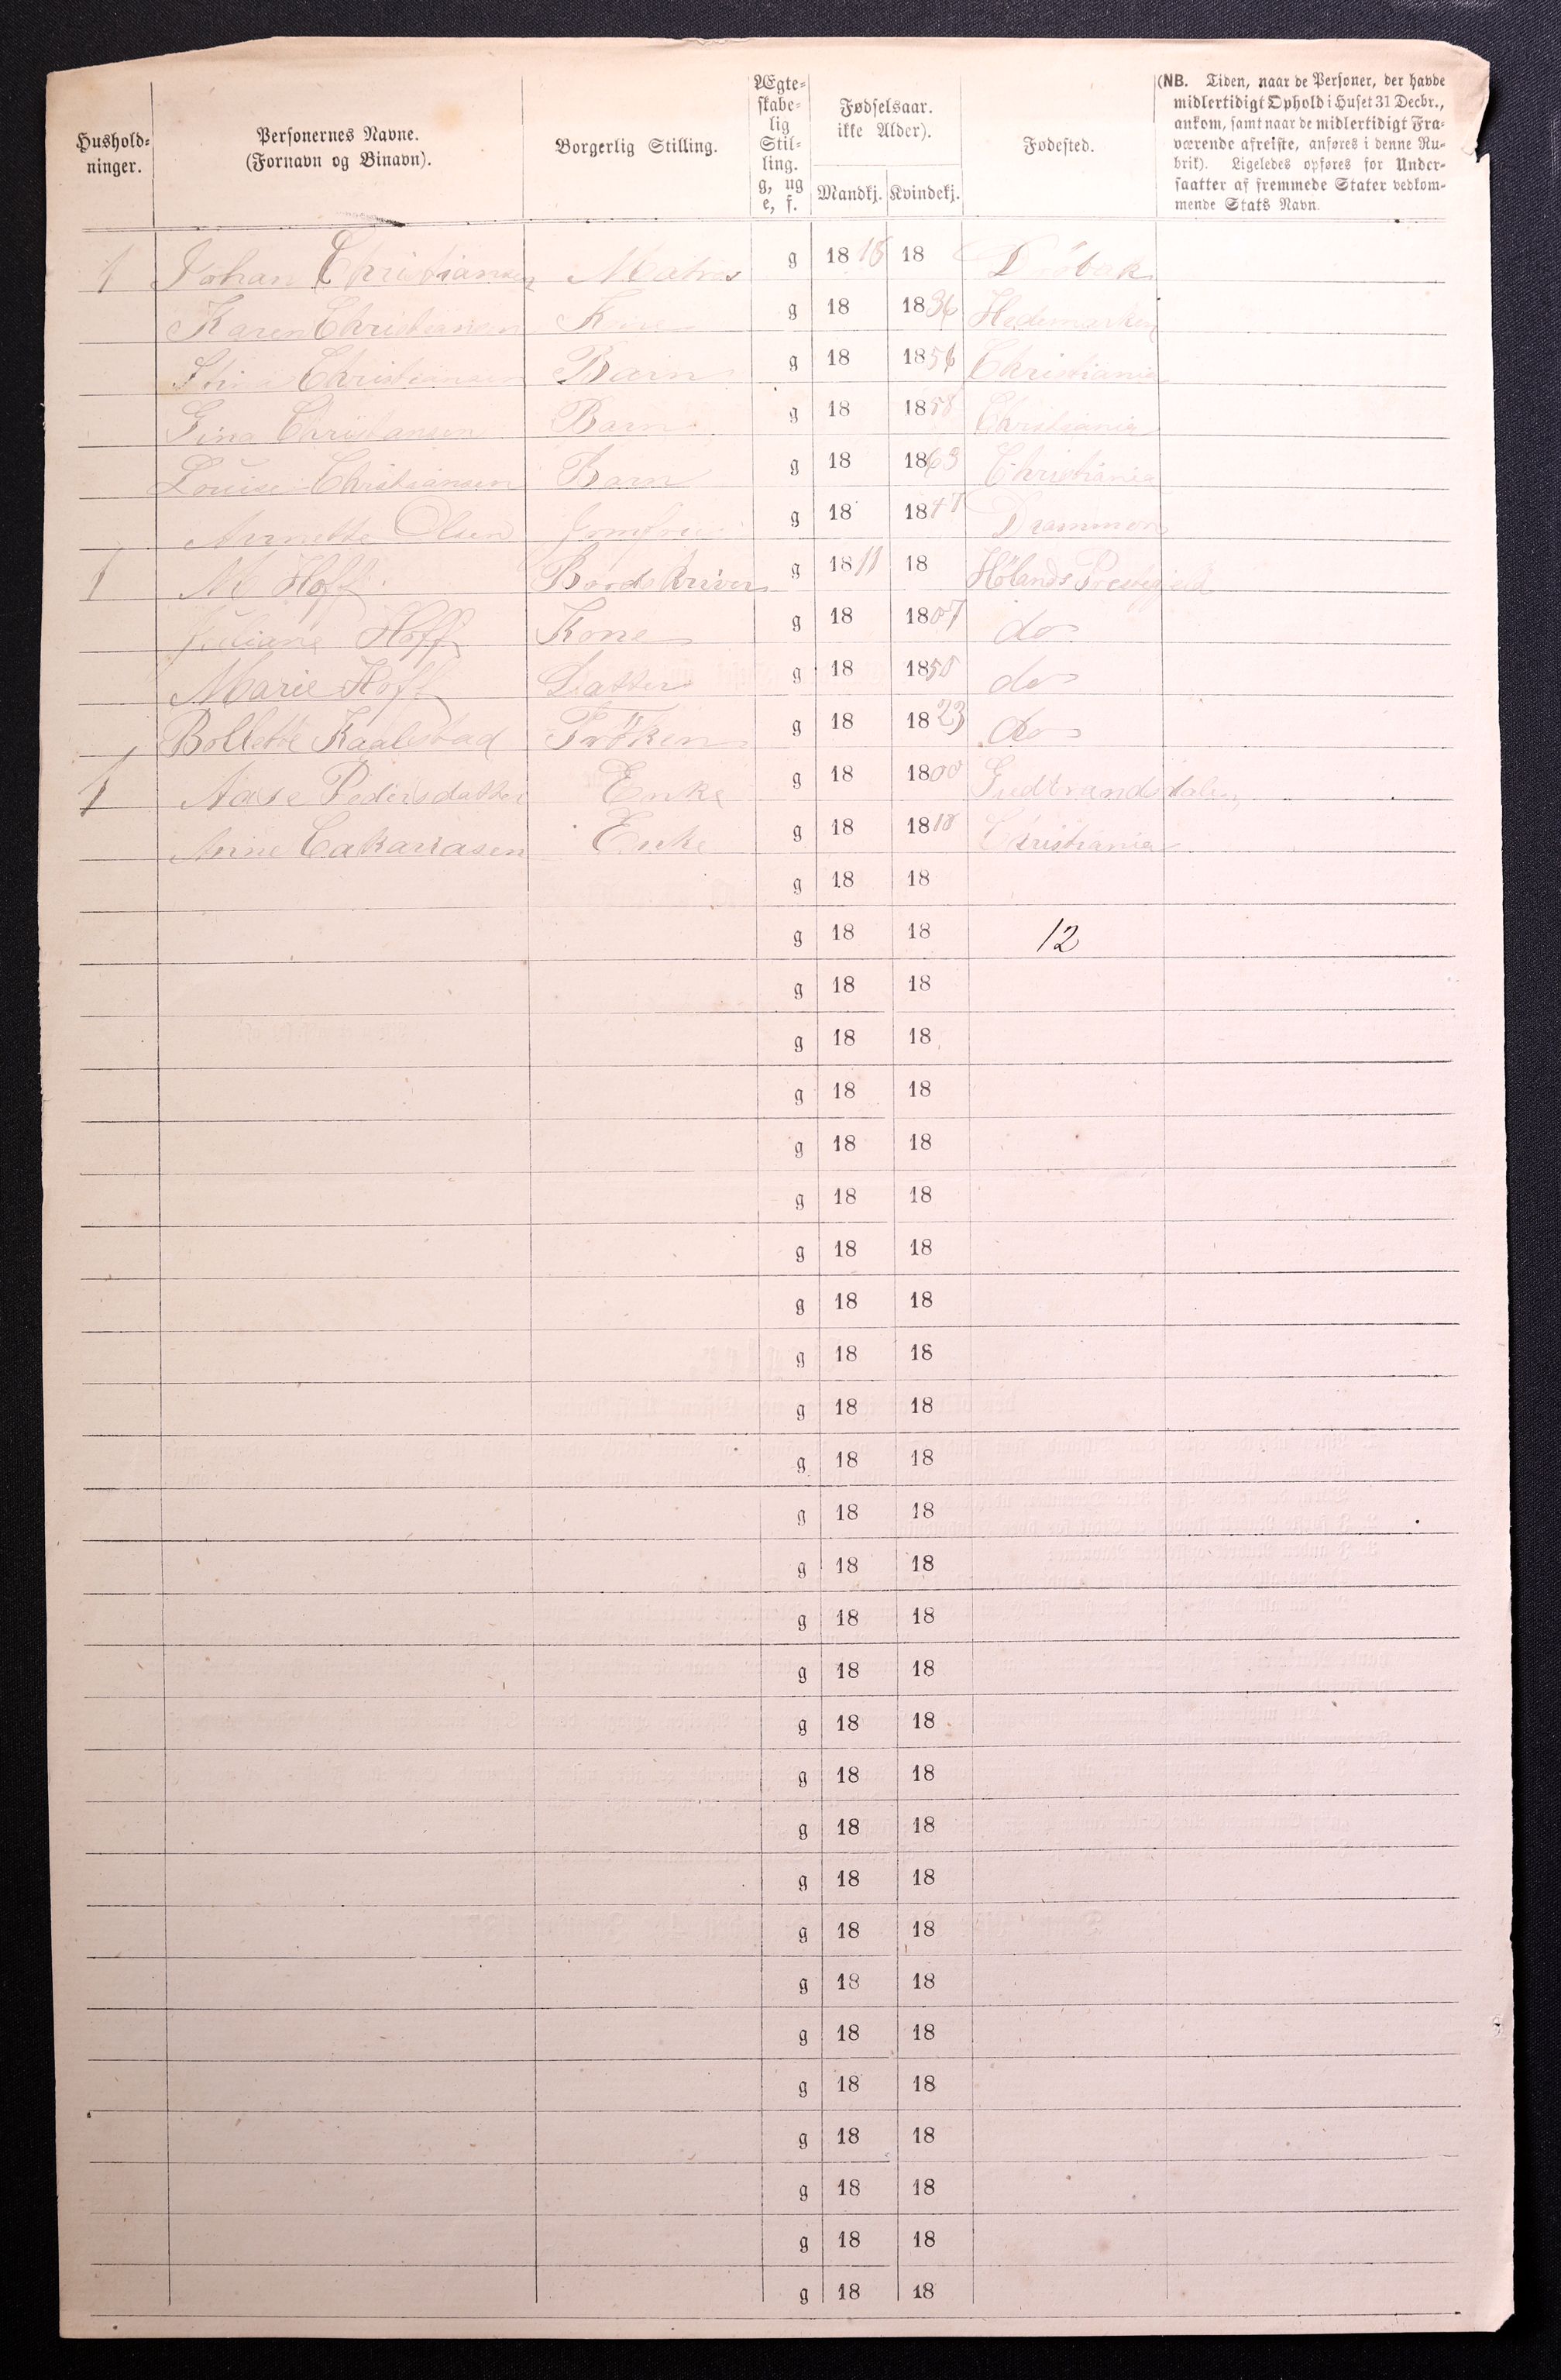 Hushold-
ninger.
Personernes Navne.
(Fornavn og Binavn).
Borgerlig Stilling.
Ægte-
skabe-
lig
Stil-
ling.
g, ug
e, f.
Fødselsaar.
ikke Alder).
Mandkj. Kvindekj.
Fødested.
(NB. Tiden, naar de Personer, der havde
midlertidigt Ophold i Huset 31 Decbr.,
ankom, samt naar de midlertidigt Fra-
værende afreiste, anføres i denne Ru-
brik). Ligeledes opføres for Under-
saatter af fremmede Stater vedkom-
mende Stats Navn.
1 Johan Christiansen Matros g 18 18 18 Dröbak
Karen Christiansen Kone g 18 1836 Hedemarken
Stina Christiansen Barn g 18 1856 Christiania
Gina Christiansen Barn g 18 1858 Christiania
Louise Christiansen Barn g 18 1863 Christiania
Annette Olsen Jomfru g 18 1847 Drammen
1 M Hoff g 1811 18 Hölands Prestegield
Juliane Hoff Kone g 18 1807 do
Marie Hoff Datter g 18 1850 do
Bollette Kaalstad Fröken g 18 1823 do
1 Aase Pedersdatter Enke g 18 1800 Gudbrandsdalen
Anne Enke g 18 1818 Christiania
g 18 18
g 18 18 12
g 18 18
g 18 18
g 18 18
g 18 18
g 18 18
g 18 18
g 18 18
g 18 18
g 18 18
g 18 18
g 18 18
g 18 18
g 18 18
g 18 18
g 18 18
g 18 18
g 18 18
g 18 18
g 18 18
g 18 18
g 18 18
g 18 18
g 18 18
g 18 18
g 18 18
g 18 18